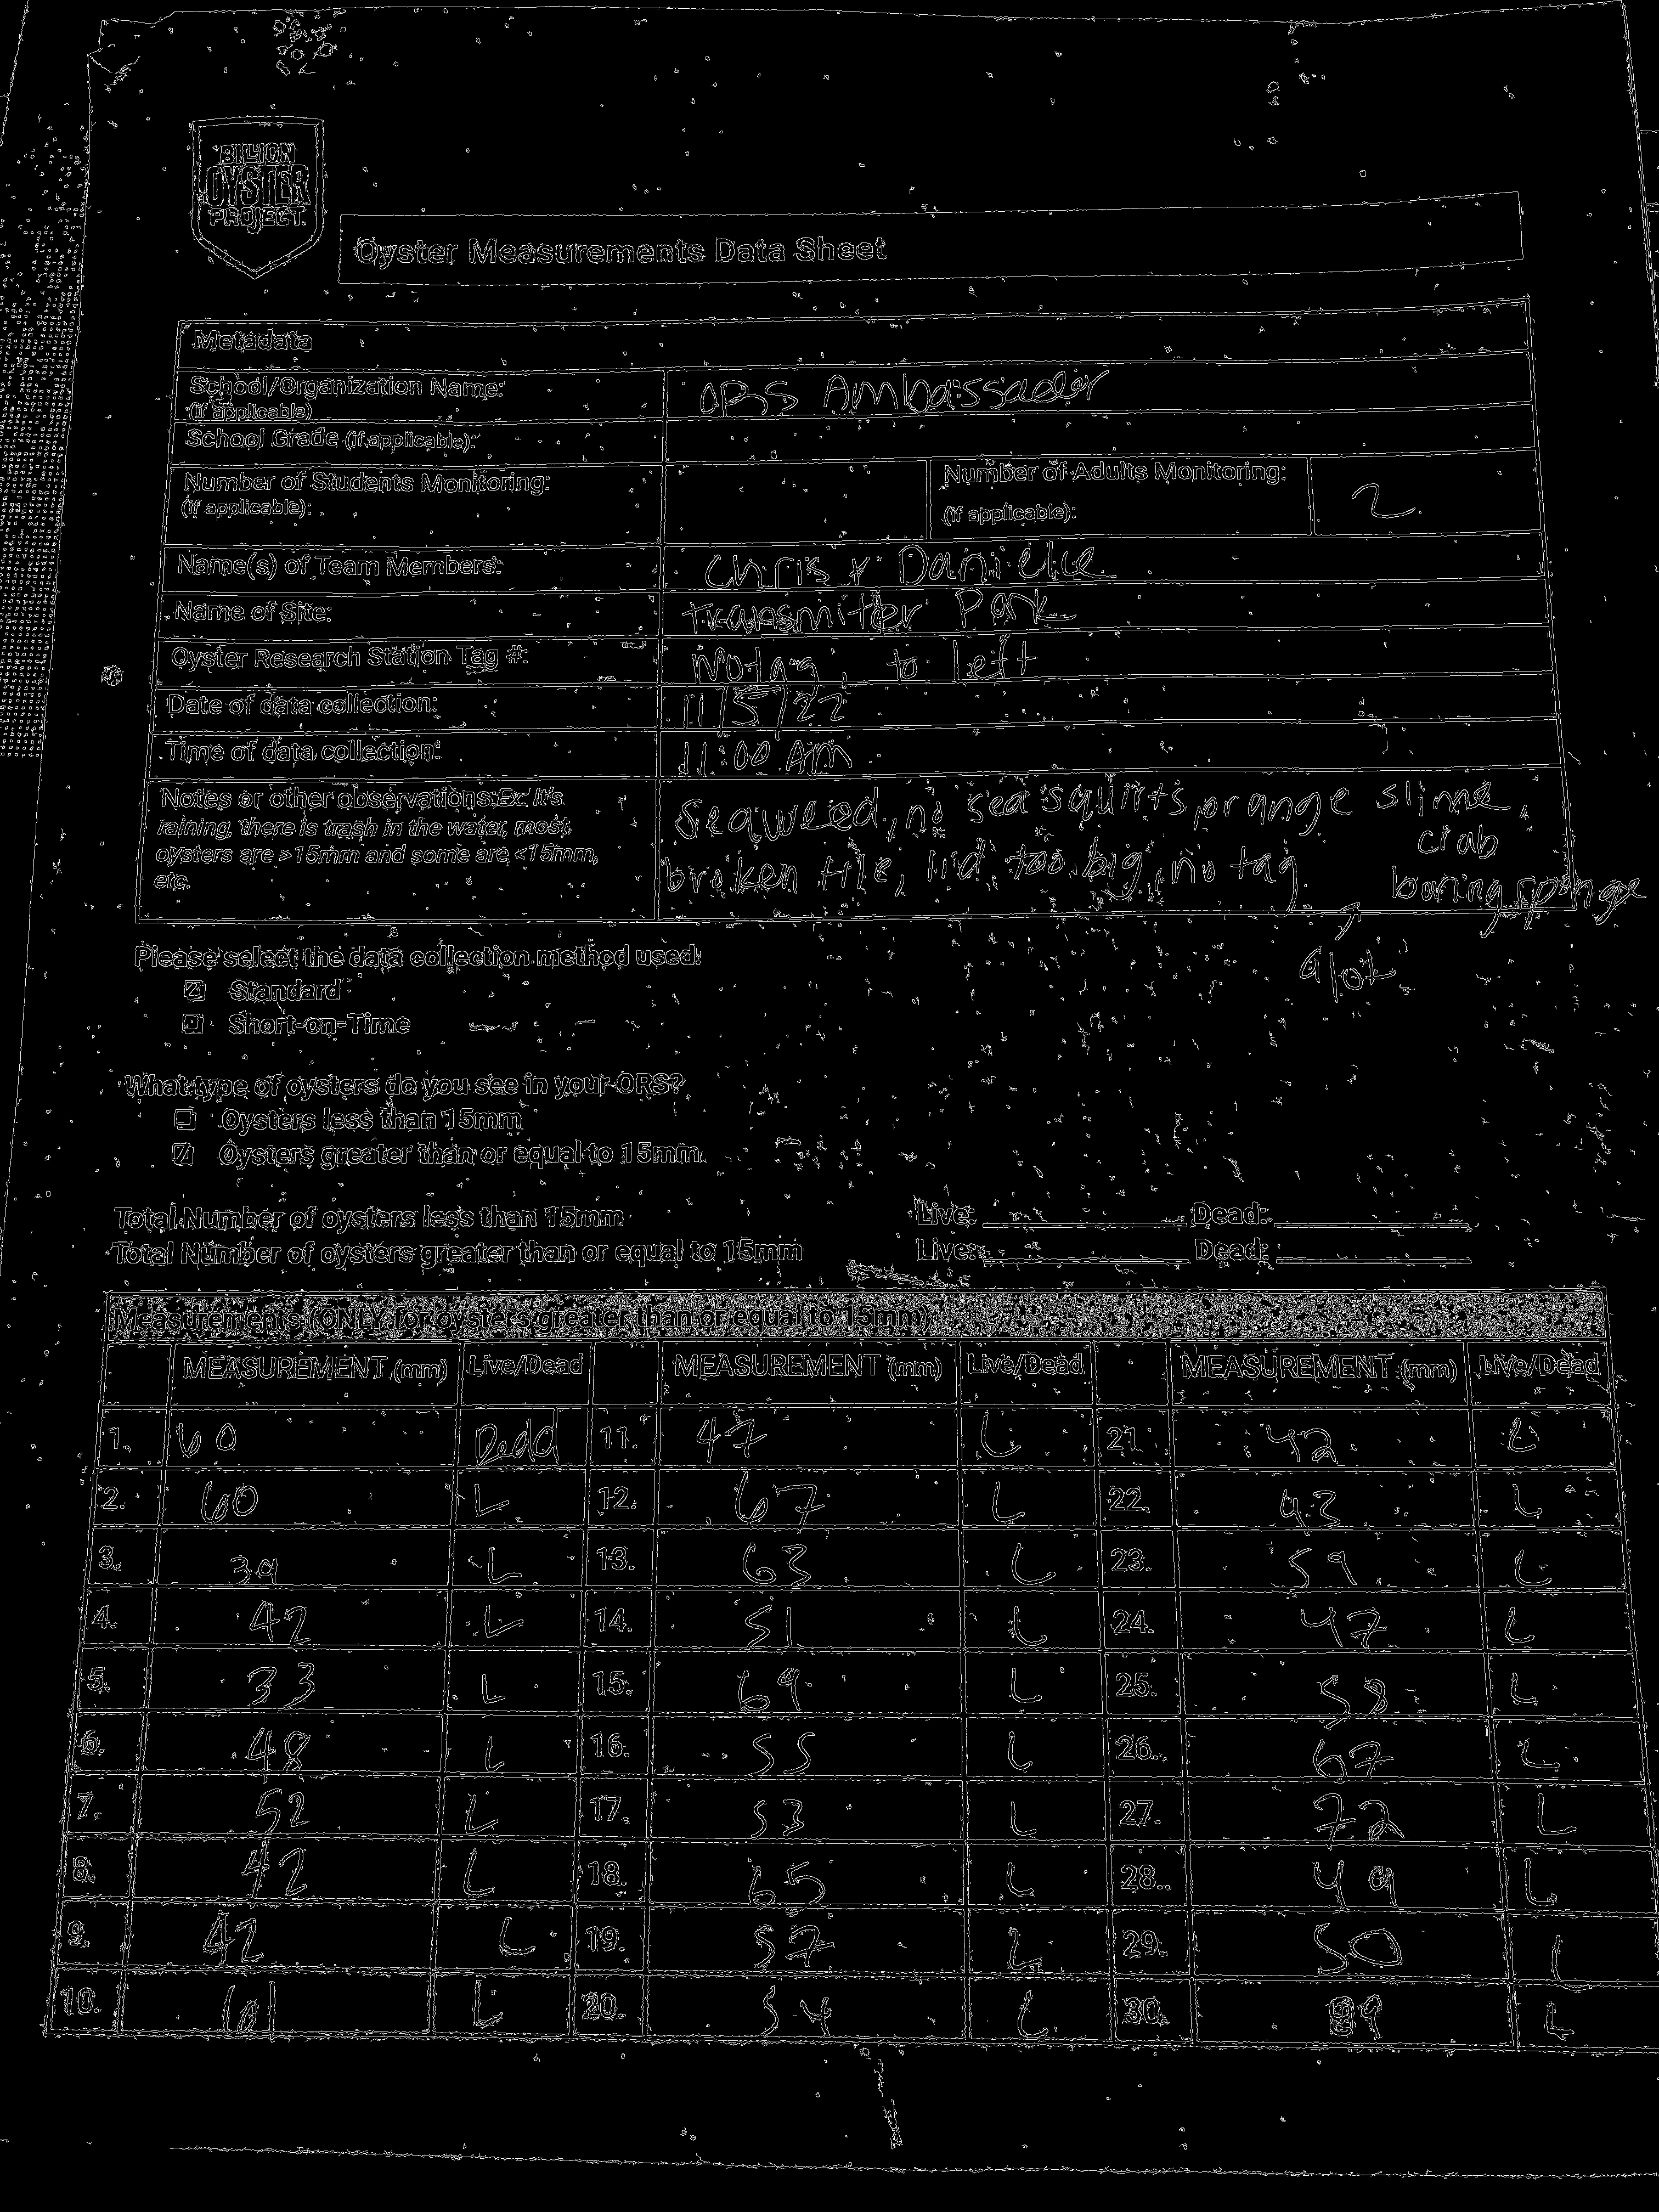 BILLION
OYSTER
PROJECT
Oyster Measurements Data Sheet
Metadata
School/Organization Name: OBS Ambassador
(if applicable)
School Grade (if applicable):
Number of Students Monitoring: Number of Adults Monitoring: 2
(if applicable): (if applicable):
Name(s) of Team Members: Chris + Danielle
Name of Site: Transmiter Park
Oyster Research Station Tag #: No tag, to left
Date of data collection: 11/5/22
Time of data collection: 11:00 Am
Notes or other observations: Ex: It's
raining, there is trash in the water, most
oysters are >15mm and some are <15mm,
etc.
Seaweed, no sea squirts, orange slime,
crab
broken tile, lid too big, no tag. boring sponge
a lot
Please select the data collection method used:
Standard
Short-on-Time
What type of oysters do you see in your ORS?
Oysters less than 15mm
Oysters greater than or equal to 15mm.
Total Number of oysters less than 15mm Live: Dead:
Total Number of oysters greater than or equal to 15mm Live: Dead:
Measurements (ONLY for oysters greater than or equal to 15mm)
MEASUREMENT (mm) Live/Dead MEASUREMENT (mm) Live/Dead MEASUREMENT (mm) Live/Dead
1. 60 Dead 11. 47 L 21. 42 L
2. 60 L 12. 67 L 22. 43 L
3. 39 L 13. 63 L 23. 59 L
4. 42 L 14. 51 L 24. 47 L
5. 33 L 15. 69 L 25. L
6. 48 L 16. 55 L 26. 67 L
7. 52 L 17. 53 L 27. 72 L
8. 42 L 18. 65 L 28. 49 L
9. 42 L 19. 57 L 29. 50 L
10. 61 L 20. 54 L 30. L